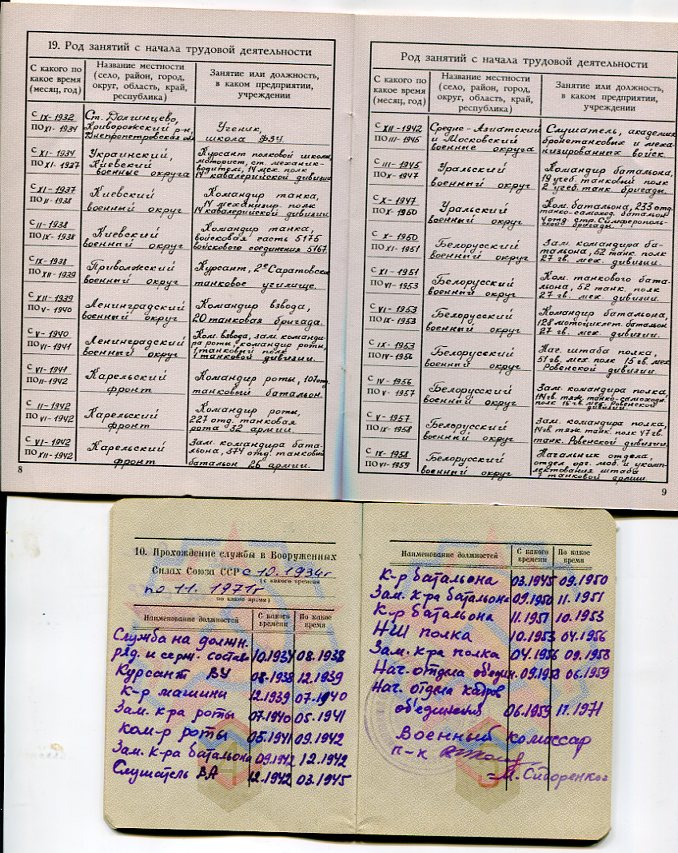 19. Род занятий с начала трудовой деятельности
С какого по какое время (месяц, год)
Название местности (село, район, город, округ, область, край, республика)
Занятие или должность, в каком предприятии, учреждении
С IX-1932 ПО VI-1934
Ст. Долгинцево, Криворожский р-н, Днепропетровская обл
Ученик, школа ФЗУ.
С XI-1934 ПО XI-1937
Украинский, Киевский военные округа
Курсант полковой школы, моторист, ст. механик-водитель, 14 мех. полк 14 кавалерийской дивизии
С XI-1937 ПО II-1938
Киевский военный округ
Командир танка, 14 механизир. полк 14 кавалерийской дивизии.
С II-1938 ПО IX-1938
Киевский военный округ
Командир танка, войсковая часть 5175 войскового соединения 5167.
С IX-1938 ПО XII-1939
Приволжский военный округ
Курсант, 2е Саратовское танковое училище.
С XII-1939 ПО V-1940
Ленинградский военный округ
Командир взвода, 20 танковая бригада.
С V-1940 ПО VI-1941
Ленинградский военный округ
Ком. взвода, зам. командира роты, командир роты, 1 танковый полк 1 танковой дивизии.
С VI-1941 ПО II-1942
Карельский фронт
Командир роты, 107 отд. танковый батальон.
С II-1942 С VI-1942
Карельский фронт
Командир роты, 227 отд. танковая рота 32 армии.
С VI-1942 ПО XII-1942
Карельский фронт
Зам. командира батальона, 374 отд. танковый батальон 26 армии.
8
Род занятий с начала трудовой деятельности
С какого по какое время (месяц, год)
Название местности (село, район, город, округ, область, край, республика)
Занятие или должность, в каком предприятии, учреждении
С XII-1942 ПО III-1945
Средне-Азиатский и Московский военные округа
Слушатель, академия бронетанковых и механизированных войск.
С III-1945 ПО X-1947
Уральский военный округ
Командир батальона, 14 учеб. танковый полк 2 учеб. танк. бригады.
С X-1947 ПО X-1950
Уральский военный округ
Ком. батальона, 233 отд. танко-самоход. батальон 4 отд. стр. Симферопольской бригады.
С X-1950 ПО XI-1951
Белорусский военный округ
Зам. командира батальона, 52 танк. полк 27 гв. мех. дивизии.
С XI-1951 ПО VI-1953
Белорусский военный округ
Ком. танкового батальона, 52 танк. полк 27 гв. мех. дивизии.
С VI-1953 ПО IX-1953
Белорусский военный округ
Командир батальона, 128 мотоциклет. батальон 27 гв. мех. дивизии.
С IX-1953 ПО IV-1956
Белорусский военный округ
Нач. штаба полка, 57 гв. мех. полк 15 гв. мех. Ровенской дивизии.
С IV-1956 ПО V-1957
Белорусский военный округ
Зам. командира полка, гв. тяж. танко-самоход. полк гв. мех. Ровенской дивизии
С V-1957 ПО IX-1958
Белорусский военный округ
Зам. командира полка, гв. тяж. танк. полк 47 гв. танк. Ровенской дивизии.
С IX-1958 ПО VI-1959
Белорусский военный округ
Начальник отдела, отдел орг. моб. и укомплектования штаба 7 танковой армии
9
10. Прохождение службы в Вооруженных
Силах Союза ССР с 10.1934г
(с какого времени
по 11. 1971г
по какое время)
Наименование должностей С какого времени По какое время
Служба на должн.
ряд. и серж. состава 10.1934 08.1938
Курсант ВУ 08.1938 12.1939
К-р машины 12.1939 07.1940
Зам. к-ра роты 07.1940 05.1941
Ком-р роты 05.1941 09.1942
Зам. к-ра батальона 09.1942 12.1942
Слушатель ВА 12.1942 03.1945
Наименование должностей С какого времени По какое время
К-р батальона 03.1945 09.1950
Зам. к-ра батальона 09.1950 11.1951
К-р батальона 11.1951 10.1953
НШ полка 10.1953 04.1956
Зам. к-ра полка 04.1956 09.1958
Нач. отдела объедин. 09.1958 06.1959
Нач. отдела кадров
объединения 06.1959 11.1971
Военный комиссар
п-к
М. Сидоренков